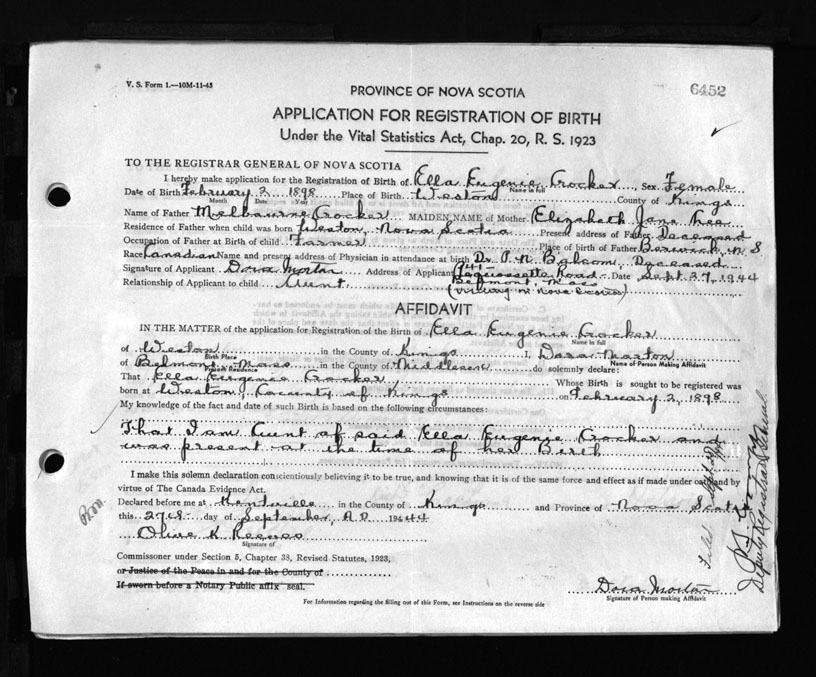 V. S. Form 1.—10M-11-43
6452
PROVINCE OF NOVA SCOTIA
APPLICATION FOR REGISTRATION OF BIRTH
Under the Vital Statistics Act, Chap. 20, R. S. 1923
TO THE REGISTRAR GENERAL OF NOVA SCOTIA
I hereby make application for the Registration of Birth of Ella Eugenie Crocker Sex Female
Name in full
Date of Birth February 2 1898 Place of Birth Weston County of Kings
Month Day Year
Name of Father Melbourne Crocker MAIDEN NAME of Mother Elizabeth Jane Nee
Residence of Father when child was born Weston, Nova Scotia Present address of Father Deceased
Occupation of Father at Birth of child Farmer Place of birth of Father Berwick N S
Race Canadian Name and present address of Physician in attendance at birth Dr. P. N. Balcom, Deceased
Signature of Applicant Dora Morton Address of Applicant Road Date Sept 27, 1944
Belmont, Mass
Relationship of Applicant to child Aunt (visiting in Nova Scotia)
AFFIDAVIT
IN THE MATTER of the application for Registration of the Birth of Ella Eugenie Crocker
Name in full
of Weston in the County of Kings I, Dora Morton
Birth Place Name of Person Making Affidavit
of Belmont, Mass in the County of Middlesex do solemnly declare:
Present Residence
That Ella Eugenie Crocker, Whose Birth is sought to be registered was
born at Weston, County of Kings on February 2, 1898
My knowledge of the fact and date of such Birth is based on the following circumstances:
That I am Aunt of said Ella Eugenie Crocker and
was present at the time of her Birth
I make this solemn declaration conscientiously believing it to be true, and knowing that it is of the same force and effect as if made under oath and by
virtue of The Canada Evidence Act.
Declared before me at Kentville in the County of Kings and Province of Nova Scotia
this 27th day of September, A.D. 1944
Olive K Reeves
Signature of
Commissioner under Section 5, Chapter 38, Revised Statutes, 1923,
or Justice of the Peace in and for the County of
If sworn before a Notary Public affix seal.
Dora Morton
Signature of Person making Affidavit
For Information regarding the filling out of this Form, see Instructions on the reverse side
Filed
Deputy Registrar General